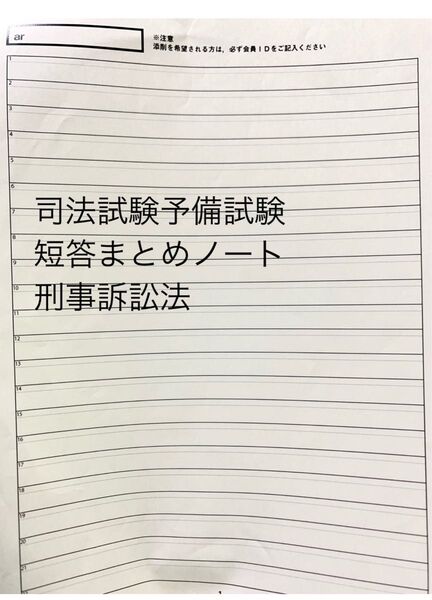 ar
※注意
添削を希望される方は、必ず会員IDをご記入ください
1
2
3
4
5
6
司法試験予備試験
7
8
短答まとめノート
9
10
刑事訴訟法
11
12
13
14
15
16
17
18
19
20
21